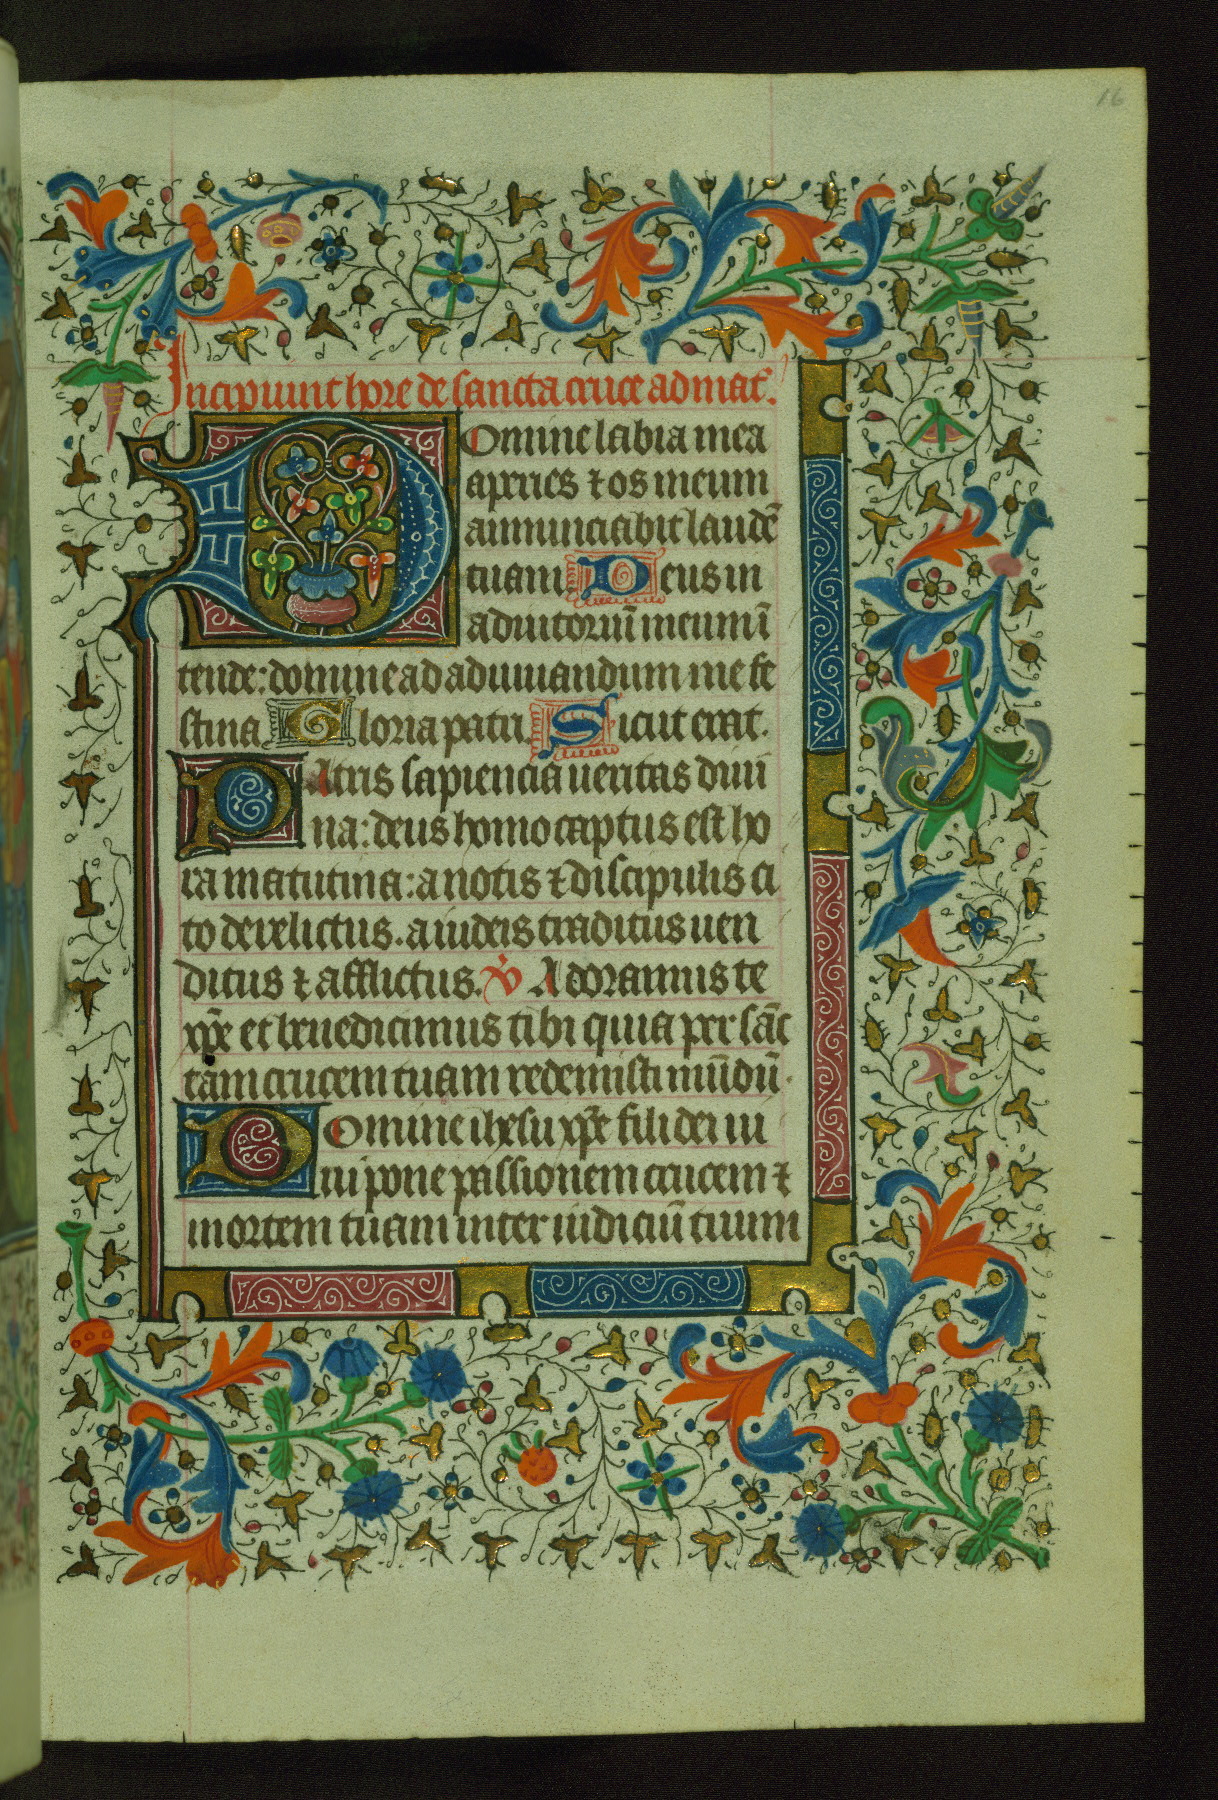 16
Incipiunt hore de sancta cruce ad mat᷒.
Domine labia mea
aperies ⁊ os meum
annunciabit laudē
tuam Deus in
adiutoriū meum ī
tende: domine ad adiuuandum me fe
stina Gloria patri Sicut erat.
Patris sapiencia ueritas diui
na: deus homo captus est ho
ra matutina: a notis ⁊ discipulis ci
to derelictus. a iudeis traditus uen
ditus ⁊ afflictus. ℣ Adoramus te
xp̄e et benedicimus tibi quia per sāc
tam crucem tuam redemisti mūdū.
Domine ihesu xp̄e fili dei ui
ui pone passionem crucem ⁊
mortem tuam inter iudiciū tuum